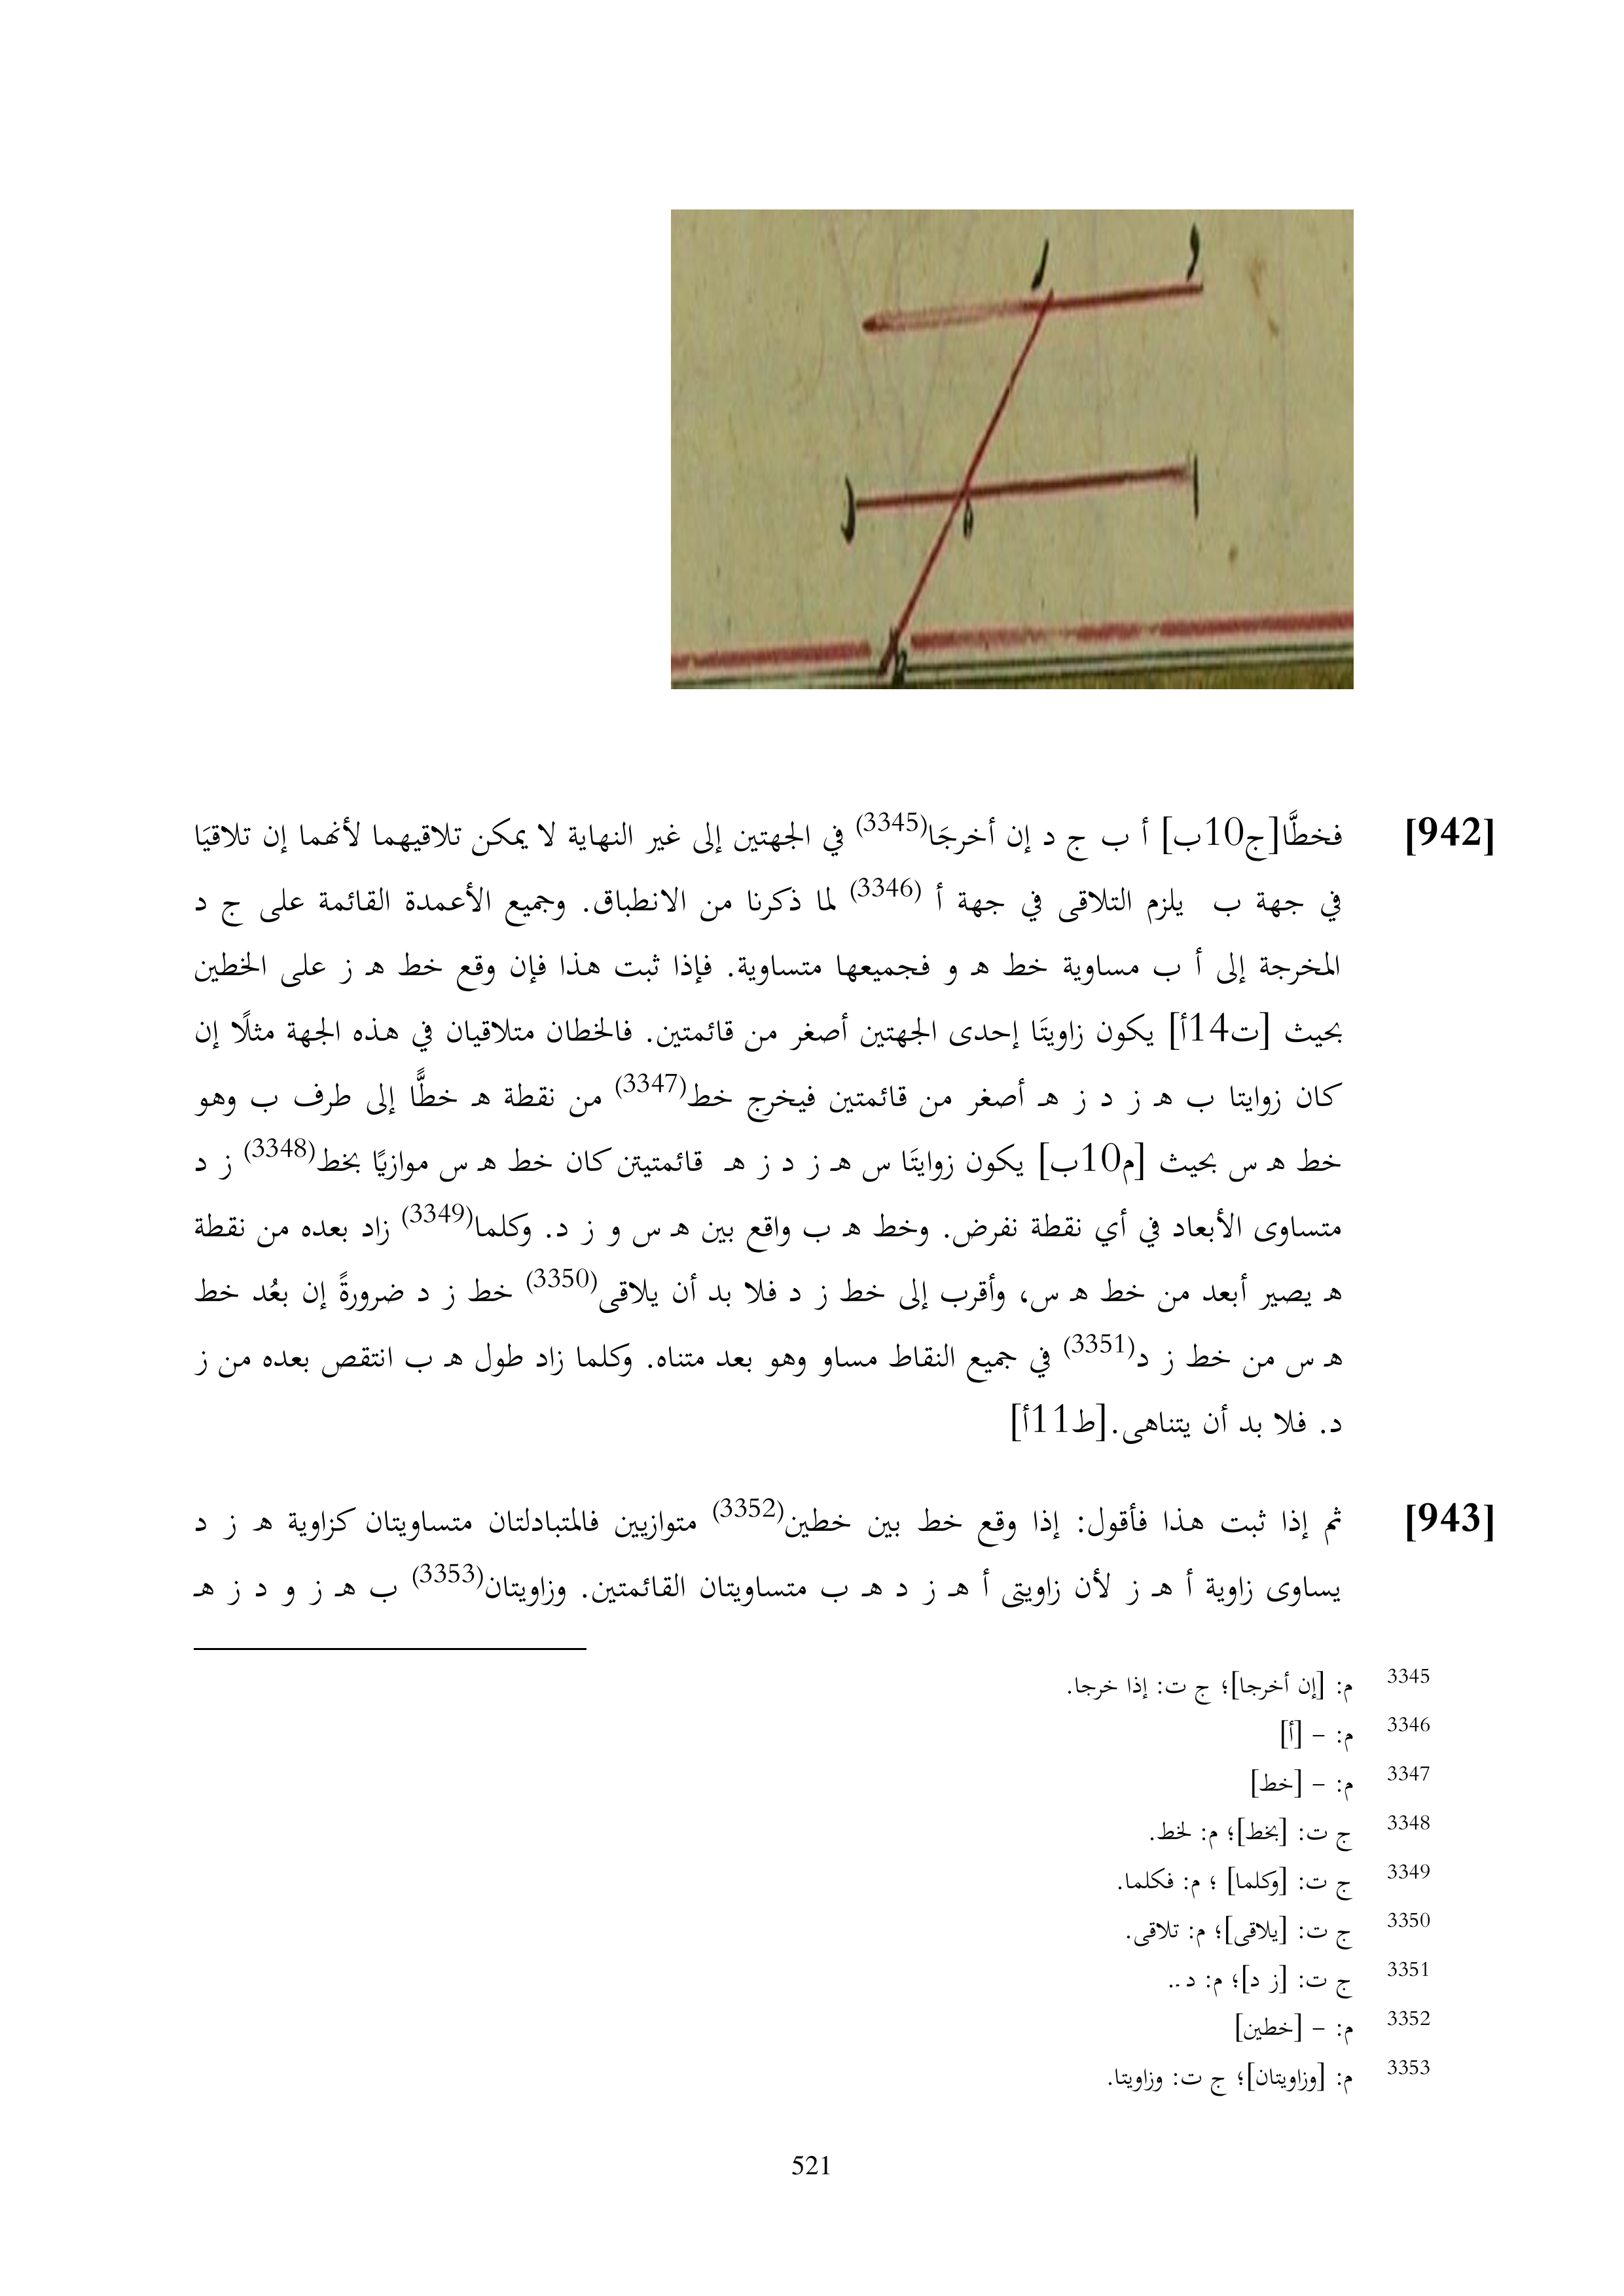 [942] فخطَّا[ج10ب] أ ب ج د إن أخرجَا(3345) في الجهتين إلى غير النهاية لا يمكن تلاقيهما لأنهما إن تلاقيَا
في جهة ب يلزم التلاقى في جهة أ (3346) لما ذكرنا من الانطباق. وجميع الأعمدة القائمة على ج د
المخرجة إلى أ ب مساوية خط هـ و فجميعها متساوية. فإذا ثبت هذا فإن وقع خط هـ ز على الخطين
بحيث [ت14أ] يكون زاويتَا إحدى الجهتين أصغر من قائمتين. فالخطان متلاقيان في هذه الجهة مثلًا إن
كان زوايتا ب هـ ز د ز هـ أصغر من قائمتين فيخرج خط(3347) من نقطة هـ خطًّا إلى طرف ب وهو
خط هـ س بحيث [م10ب] يكون زوايتَا س هـ ز د ز هـ قائمتيتن كان خط هـ س موازيًا بخط(3348) ز د
متساوى الأبعاد في أي نقطة نفرض. وخط هـ ب واقع بين هـ س و ز د. وكلما(3349) زاد بعده من نقطة
هـ يصير أبعد من خط هـ س، وأقرب إلى خط ز د فلا بد أن يلاقى(3350) خط ز د ضرورةً إن بعُد خط
هـ س من خط ز د(3351) في جميع النقاط مساو وهو بعد متناه. وكلما زاد طول هـ ب انتقص بعده من ز
د. فلا بد أن يتناهى.[ط11أ]
[943] ثم إذا ثبت هذا فأقول: إذا وقع خط بين خطين(3352) متوازيين فالمتبادلتان متساويتان كزاوية هـ ز د
يساوى زاوية أ هـ ز لأن زاويتى أ هـ ز د هـ ب متساويتان القائمتين. وزاويتان(3353) ب هـ ز و د ز هـ
3345 م: [إن أخرجا]؛ ج ت: إذا خرجا.
3346 م: – [أ]
3347 م: – [خط]
3348 ج ت: [بخط]؛ م: لخط.
3349 ج ت: [وكلما] ؛ م: فكلما.
3350 ج ت: [يلاقى]؛ م: تلاقى.
3351 ج ت: [ز د]؛ م: د..
3352 م: – [خطين]
3353 م: [وزاويتان]؛ ج ت: وزاويتا.
521